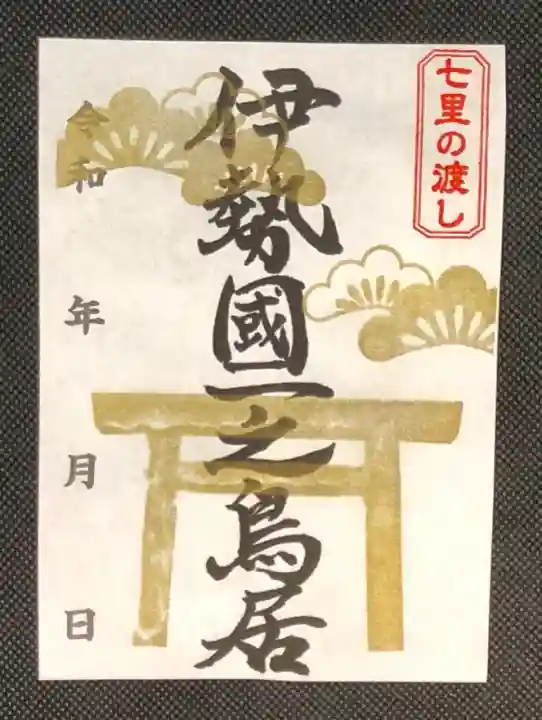 七里の渡し
伊勢國一之鳥居
令和 年 月 日